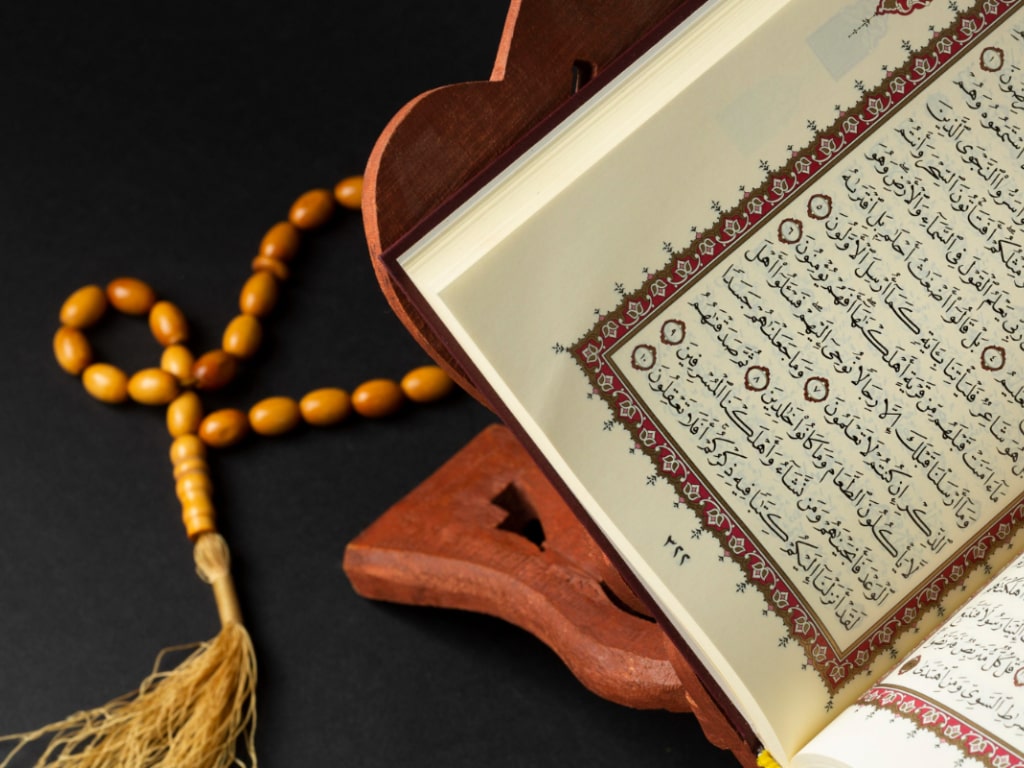 وَأَسَرُّوا۟ ٱلنَّجْوَى ٱلَّذِينَ
مِّثْلُكُمْ أَفَتَأْتُونَ ٱلسِّحْرَ وَأَنتُمْ
يَعْلَمُ ٱلْقَوْلَ فِى ٱلسَّمَآءِ وَٱلْأَرْضِ وَهُوَ
٤ بَلْ قَالُوٓا۟ أَضْغَٰثُ أَحْلَٰمٍۭ بَلِ ٱفْتَرَىٰهُ
بَلْ هُوَ شَاعِرٌ فَلْيَأْتِنَا بِـَٔايَةٍ كَمَآ أُرْسِلَ ٱلْأَوَّلُونَ ٥
مَآ ءَامَنَتْ قَبْلَهُم مِّن قَرْيَةٍ أَهْلَكْنَٰهَآ أَفَهُمْ يُؤْمِنُونَ ٦
وَمَآ أَرْسَلْنَا قَبْلَكَ إِلَّا رِجَالًا نُّوحِىٓ إِلَيْهِمْ فَسْـَٔلُوٓا۟ أَهْلَ
ٱلذِّكْرِ إِن كُنتُمْ لَا تَعْلَمُونَ ٧ وَمَا جَعَلْنَٰهُمْ جَسَدًا
لَّا يَأْكُلُونَ ٱلطَّعَامَ وَمَا كَانُوا۟ خَٰلِدِينَ ٨ ثُمَّ صَدَقْنَٰهُمُ
ٱلْوَعْدَ فَأَنجَيْنَٰهُمْ وَمَن نَّشَآءُ وَأَهْلَكْنَا ٱلْمُسْرِفِينَ ٩
لَقَدْ أَنزَلْنَآ إِلَيْكُمْ كِتَٰبًا فِيهِ ذِكْرُكُمْ أَفَلَا تَعْقِلُونَ ١٠
٣٢٢
ٱلسَّوِىِّ وَمَنِ ٱهْتَدَىٰ